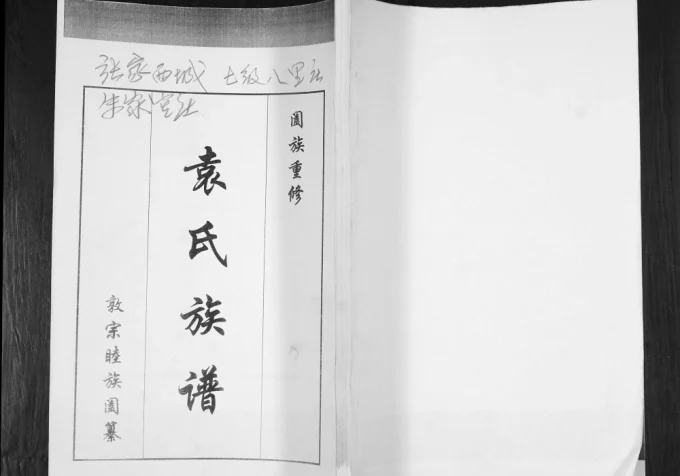 张家西城 七级八里社
朱家宫社
圕族重修
袁氏族谱
敦宗睦族圕纂